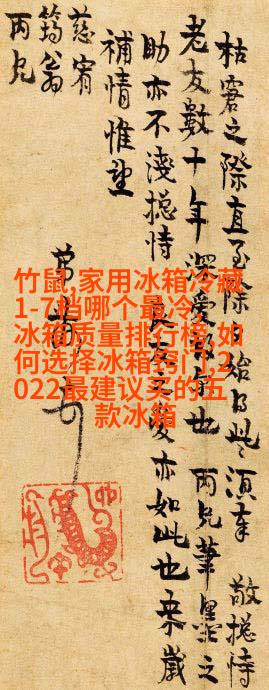 枯窘之際直至除始得此須奉 敬摠恃
老友數十年深愛 也 丙兄筆墨之
助亦不淺摠恃 之愛亦如此也
補情惟望
慈宥
翁
丙兄
弟
竹鼠,家用冰箱冷藏
1-7档哪个最冷,
冰箱质量排行榜,如
何选择冰箱窄门,2
022最建议买的五
款冰箱